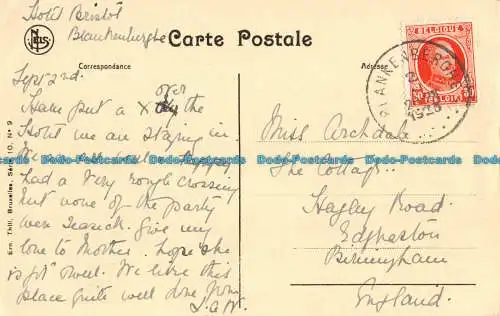 Hotel Bristol
Blankenberghe
NELS
Carte Postale
Correspondance
Adresse
BELGIQUE
BELGIË
BLANKENBERGHE
1928
Sept 2nd.
Have put a X over the
Hotel we are staying in.
We
had a very rough crossing
but none of the party
were seasick. Give my
love to Mother. hope she
is well. We like this
place quite well done from
L.A.W.
Miss Archdale
The Cottage.
Hagley Road
Edgbaston
Birmingham
England.
Ern. Thill, Bruxelles, Série 10, No 9
Dodo-Postcards Dodo-Postcards Dodo-Postcards Dodo-Postcards Dodo-Postcards